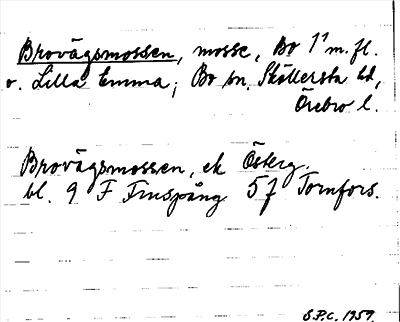 Brovägsmossen, mosse, Bo 1¹ m. fl.
v. Lilla Emma; Bo sn, Sköllersta hd,
Örebro l.
Brovägsmossen, ek Österg.
bl. 9 F Finspång 5f Tornfors.
S.P.C. 1959.